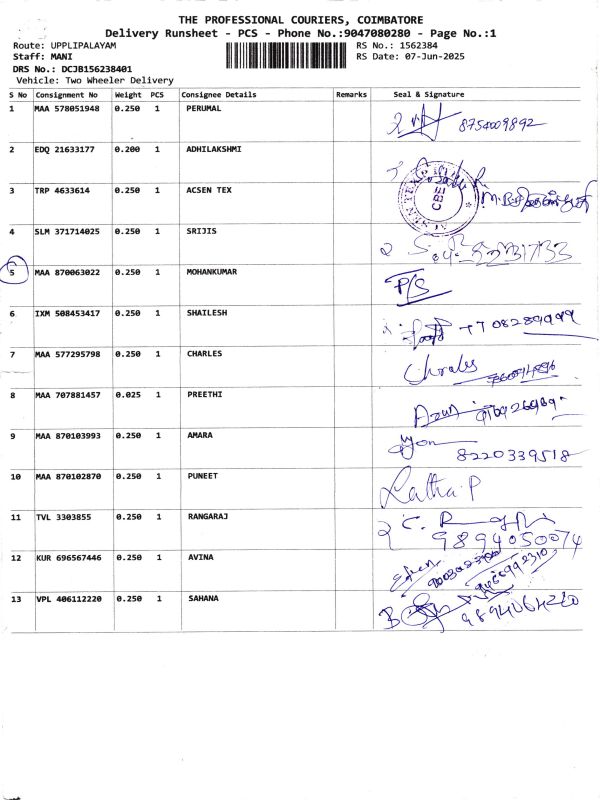 THE PROFESSIONAL COURIERS, COIMBATORE
Delivery Runsheet - PCS - Phone No.:9047080280 - Page No.:1
Route: UPPLIPALAYAM RS No.: 1562384
Staff: MANI RS Date: 07-Jun-2025
DRS No.: DCJB156238401
Vehicle: Two Wheeler Delivery
S No Consignment No Weight PCS Consignee Details Remarks Seal & Signature
1 MAA 578051948 0.250 1 PERUMAL 8754009892
2 EDQ 21633177 0.200 1 ADHILAKSHMI
3 TRP 4633614 0.250 1 ACSEN TEX CBE
4 SLM 371714025 0.250 1 SRIJIS
5 MAA 870063022 0.250 1 MOHANKUMAR P/S
6 IXM 508453417 0.250 1 SHAILESH
7 MAA 577295798 0.250 1 CHARLES Charles
8 MAA 707881457 0.025 1 PREETHI
9 MAA 870103993 0.250 1 AMARA 8220339518
10 MAA 870102870 0.250 1 PUNEET Latha P
11 TVL 3303855 0.250 1 RANGARAJ 9894050074
12 KUR 696567446 0.250 1 AVINA
13 VPL 406112220 0.250 1 SAHANA